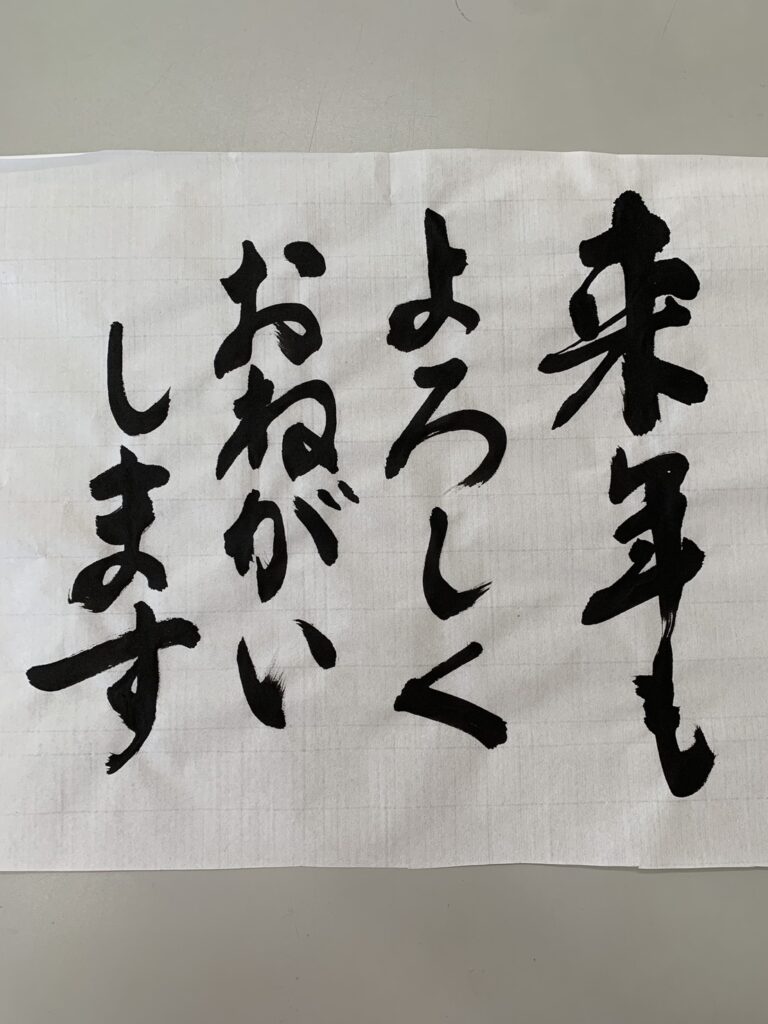 来年も
よろしく
おねがい
します